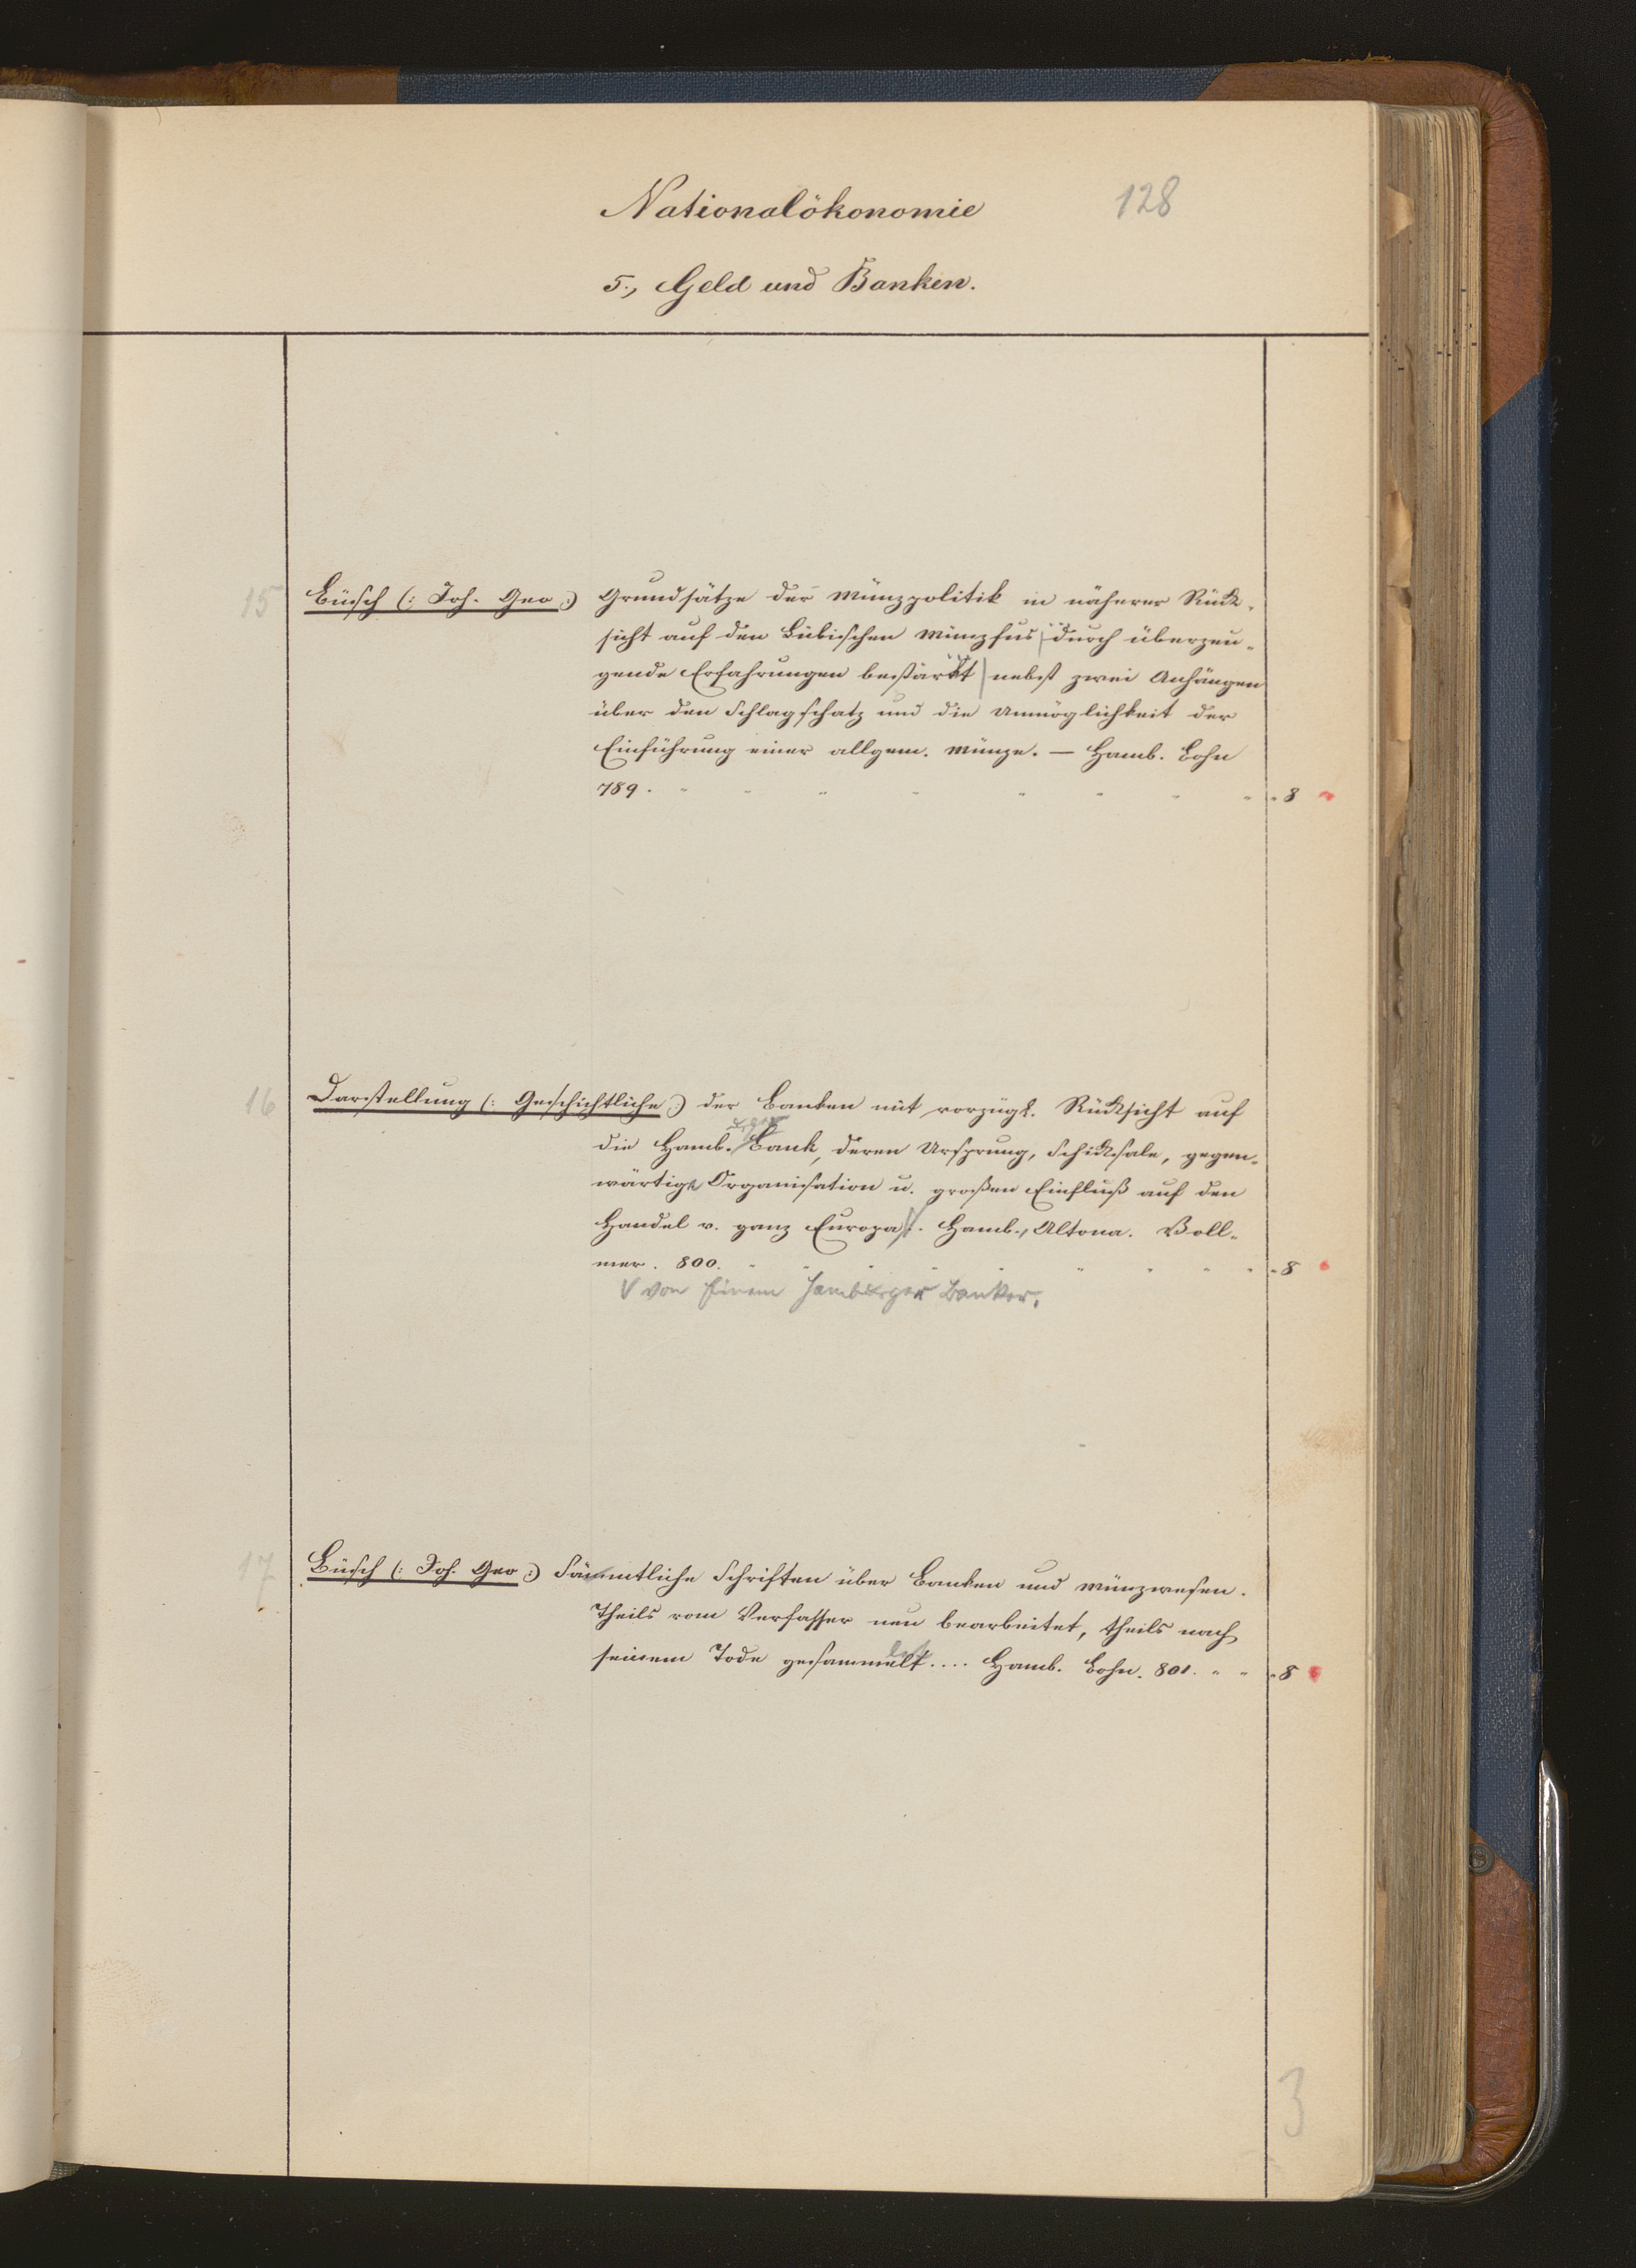 Nationalökonomie 128
5., Geld und Banken.
15 Büsch (: Joh. Geo :) Grundsätze der Münzpolitik in näherer Rück-
sicht auf den Lübischen Münzfus durch überzeu-
gende Erfahrungen bestärkt nebst zwei Anhängen
über den Schlagschatz und die Unmöglichkeit der
Einführung einer allgem. Münze. — Hamb. Bohn
789. " " " " " " " " " 8
16 Darstellung (: Geschichtliche :) der Banken mit vorzügl. Rücksicht auf
die Hamb. Bank, deren Ursprung, Schicksale, gegen-
wärtige Organisation u. großen Einfluß auf den
Handel v. ganz Europa. Hamb., Altona. Voll-
mer. 800. " " " " " " " " 8
V von Einem Hamburger Banker.
17 Büsch (: Joh. Geo :) Sämmtliche Schriften über Banken und Münzwesen.
Theils vom Verfasser neu bearbeitet, theils nach
seinem Tode gesammelt.... Hamb. Bohn. 801. " " " 8
3